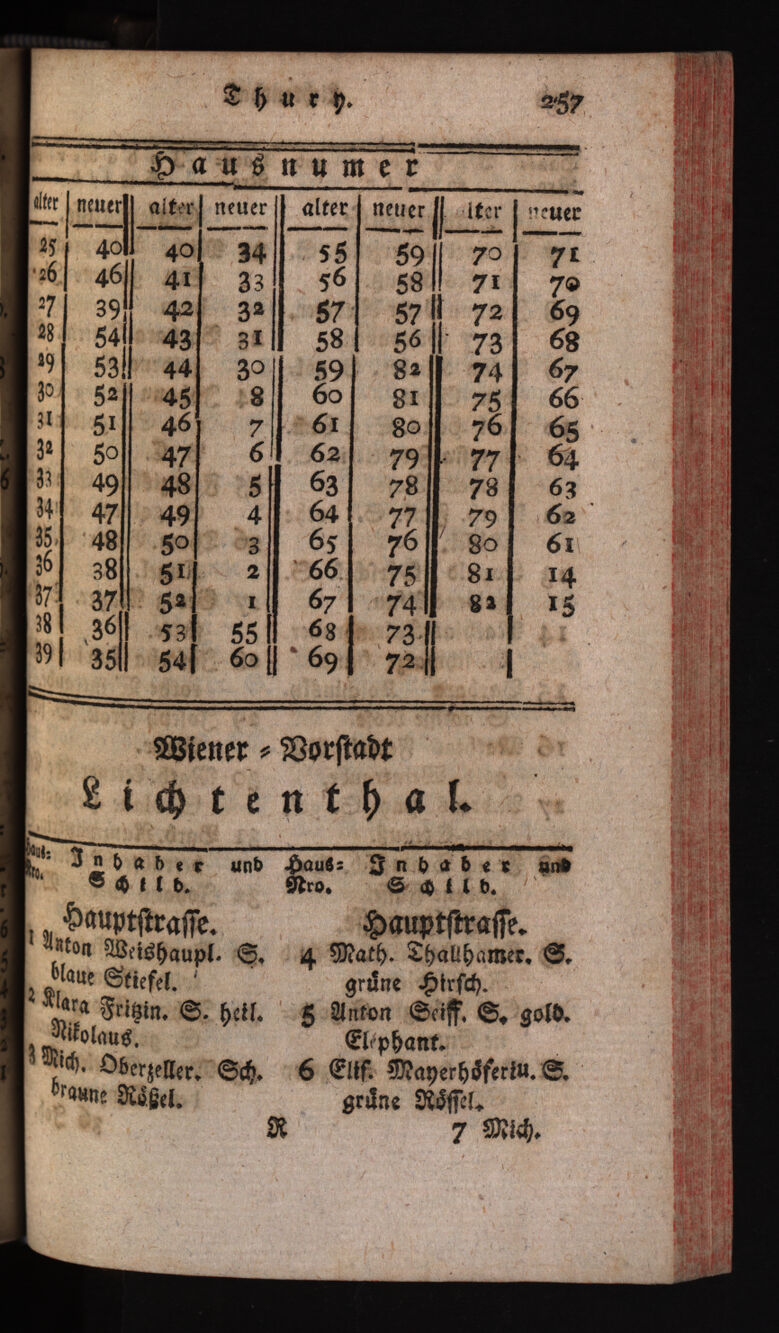 Thury. 257
Hausnumer
alter neuer alter neuer alter neuer lter neuer
25 40 40 34 55 59 70 71
26 46 41 33 56 58 71 70
27 39 42 32 57 57 72 69
28 54 43 31 58 56 73 68
29 53 44 30 59 82 74 67
30 52 45 8 60 81 75 66
31 51 46 7 61 80 76 65
32 50 47 6 62 79 77 64
33 49 48 5 63 78 78 63
34 47 49 4 64 77 79 62
35 48 50 3 65 76 80 61
36 38 51 2 66 75 81 14
37 37 52 1 67 74 82 15
38 36 53 55 68 73
39 35 54 60 69 72
Wiener-Vorstadt
Lichtenthal.
Haus- Nro. Inhaber und
Schild.
Hauptstrasse.
1 Anton Weishaupl. S.
blaue Stiefel.
2 Klara Fritzin. S. heil.
Nikolaus.
3 Mich. Oberzeller. Sch.
braune Rößel.
Haus- Inhaber und
Nro. Schild.
Hauptstrasse.
4 Math. Thallhamer. S.
grüne Hirsch.
5 Anton Seiff. S. gold.
Elephant.
6 Elis. Mayerhöferin. S.
grüne Rössel.
R 7 Mich.